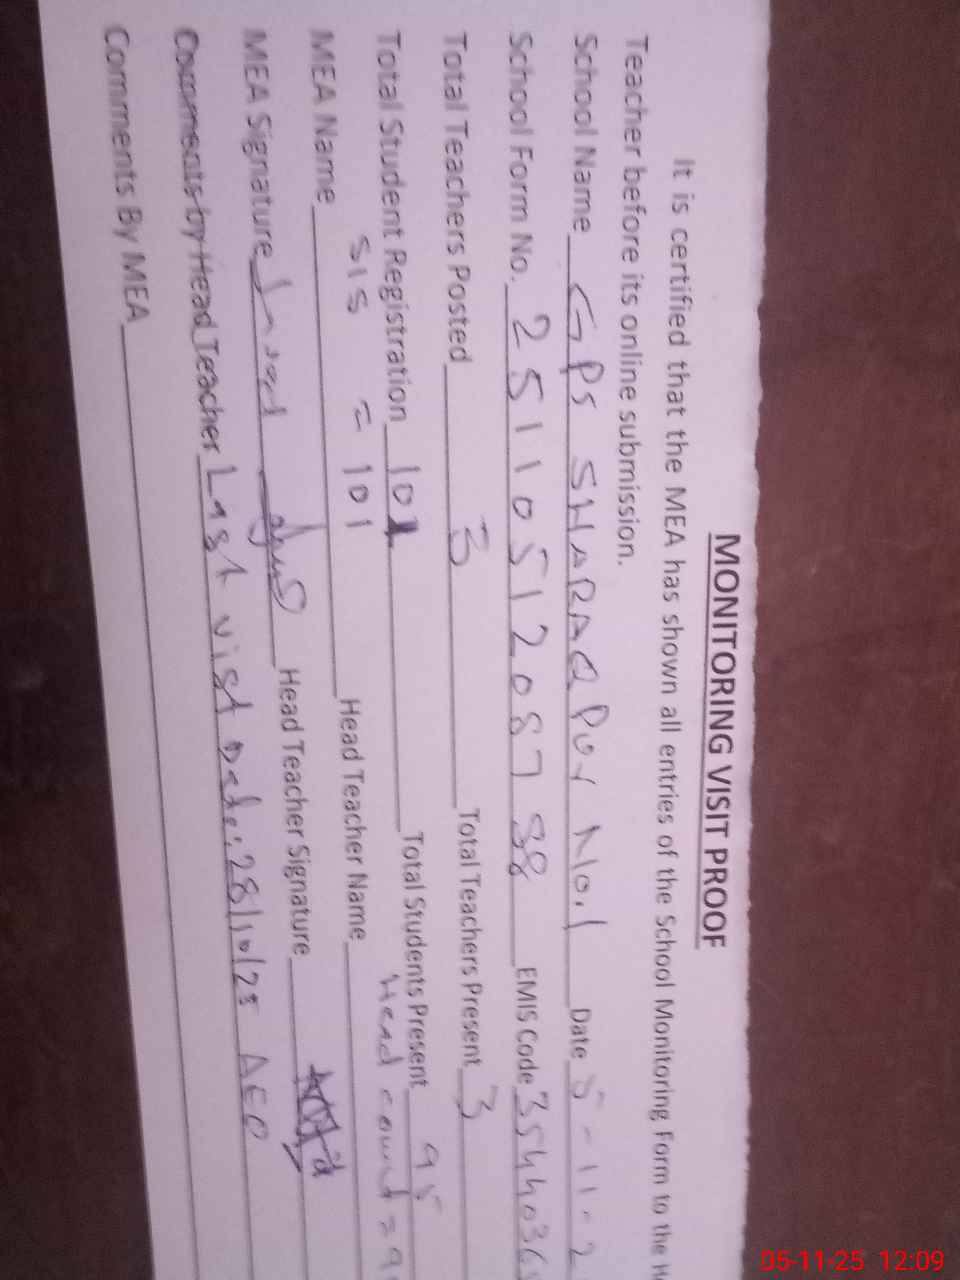 MONITORING VISIT PROOF
It is certified that the MEA has shown all entries of the School Monitoring Form to the
Teacher before its online submission.
School Name GPS SHARAQPUR No.1 Date 5-11-2
School Form No. 25110512087 88 EMIS Code 3544036
Total Teachers Posted 3 Total Teachers Present 3
Total Student Registration 101 Total Students Present 95
SIS = 101 Head count = 9
MEA Name Head Teacher Name
MEA Signature Head Teacher Signature
Comments by Head Teacher Last vist Date: 28/10/25 AEO
Comments By MEA
05-11-25 12:09